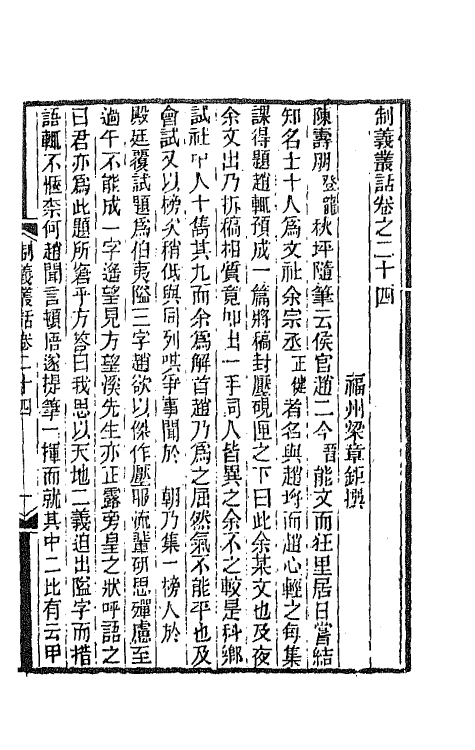 制義叢話卷之二十四
福州梁章鉅撰
陳壽朋登龍秋坪隨筆云侯官趙二今晉能文而狂里居日嘗結
知名士十人爲文社余宗丞正健者名與趙埒而趙心輕之每集
課得題趙輒預成一篇將稿封壓硯匣之下曰此余某文也及夜
余文出乃拆稿相質竟如出一手同人皆異之余不之較是科鄉
試社中人十雋其九而余爲解首趙乃爲之屈然氣不能平也及
會試又以榜次稍低與同列哄爭事聞於 朝乃集一榜人於
殿廷覆試題爲伯夷隘三字趙欲以傑作壓耶流輩研思殫慮至
過午不能成一字遙望見方望溪先生亦正露旁皇之狀呼語之
曰君亦爲此題所窘乎方答曰我思以天地二義迫出隘字而措
語輒不愜柰何趙聞言頓悟遂提筆一揮而就其中二比有云甲
制義叢話卷二十四
一